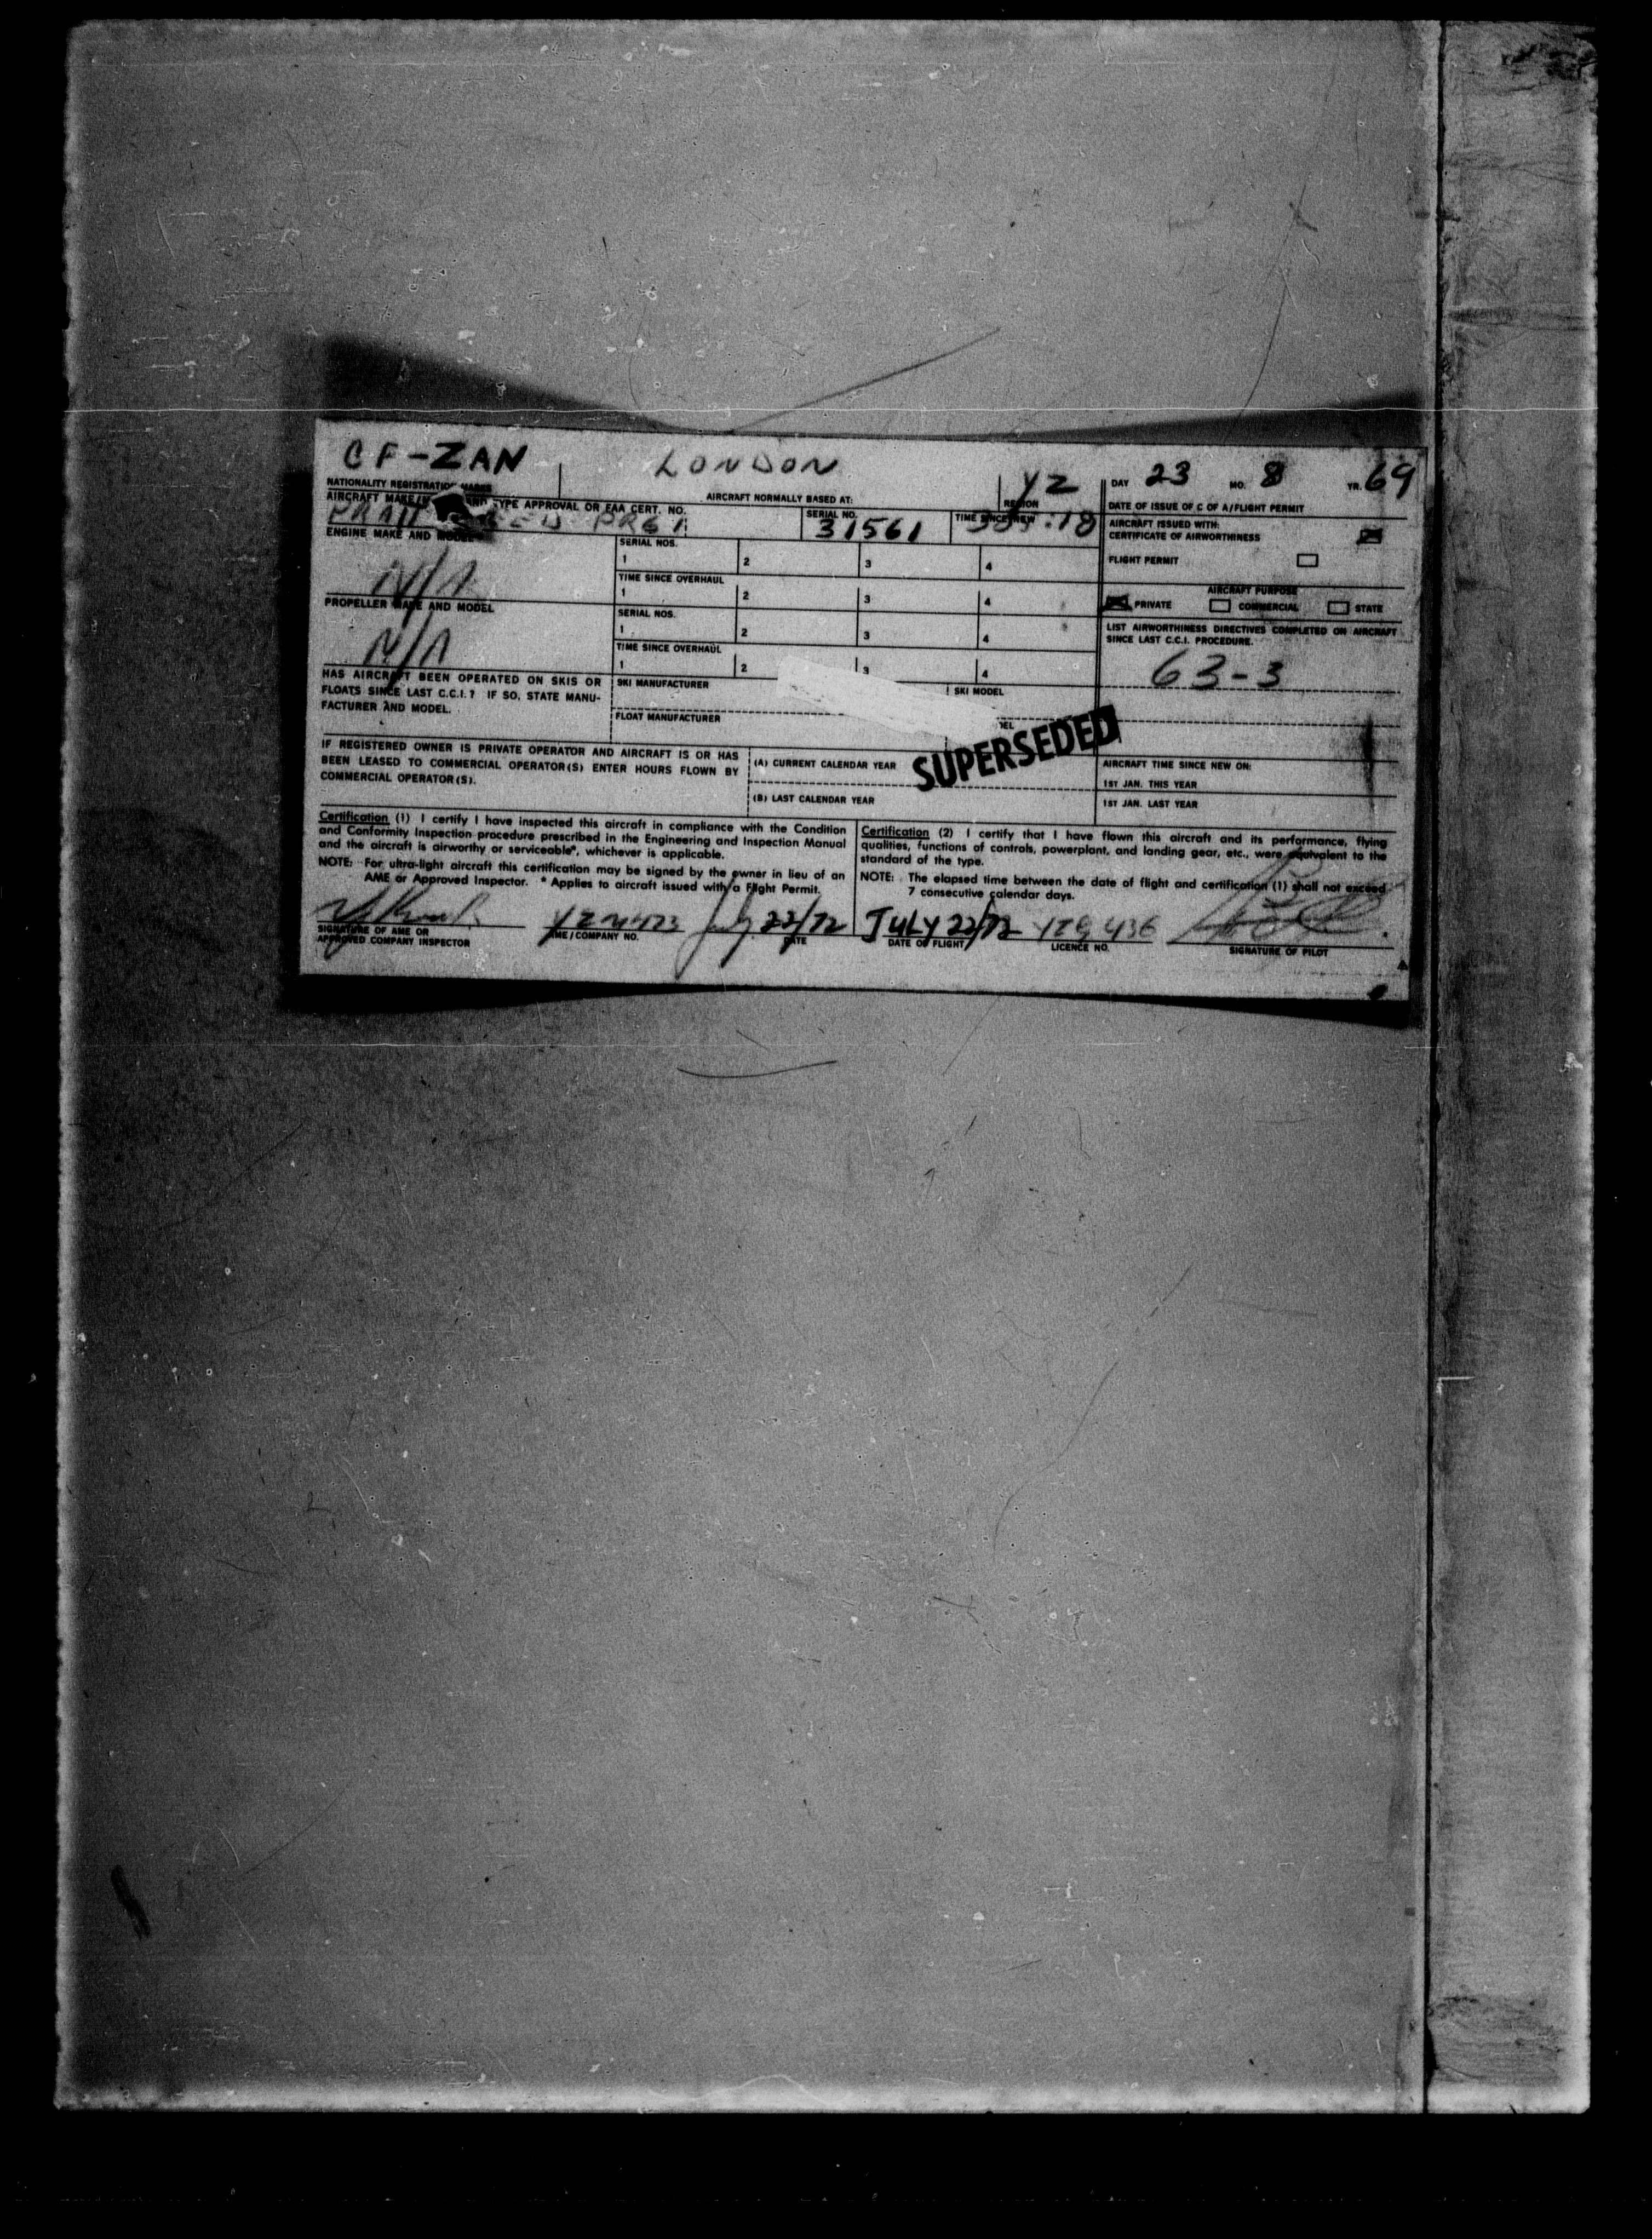 CF-ZAN LONDON YZ DAY 23 MO. 8 YR. 69
NATIONALITY REGISTRATION MARKS AIRCRAFT NORMALLY BASED AT: REGION DATE OF ISSUE OF C OF A/FLIGHT PERMIT
AIRCRAFT MAKE/ AND TYPE APPROVAL OR FAA CERT. NO. SERIAL NO. TIME SINCE NEW
PRG1 31561 :18
AIRCRAFT ISSUED WITH:
CERTIFICATE OF AIRWORTHINESS
FLIGHT PERMIT
ENGINE MAKE AND MODEL
N/A
SERIAL NOS.
1 2 3 4
TIME SINCE OVERHAUL
1 2 3 4
AIRCRAFT PURPOSE
PRIVATE COMMERCIAL STATE
PROPELLER MAKE AND MODEL
N/A
SERIAL NOS.
1 2 3 4
TIME SINCE OVERHAUL
1 2 3 4
LIST AIRWORTHINESS DIRECTIVES COMPLETED ON AIRCRAFT
SINCE LAST C.C.I. PROCEDURE.
63-3
HAS AIRCRAFT BEEN OPERATED ON SKIS OR
FLOATS SINCE LAST C.C.I.? IF SO, STATE MANU-
FACTURER AND MODEL.
SKI MANUFACTURER SKI MODEL
FLOAT MANUFACTURER
SUPERSEDED
IF REGISTERED OWNER IS PRIVATE OPERATOR AND AIRCRAFT IS OR HAS
BEEN LEASED TO COMMERCIAL OPERATOR(S) ENTER HOURS FLOWN BY
COMMERCIAL OPERATOR(S).
(A) CURRENT CALENDAR YEAR
(B) LAST CALENDAR YEAR
AIRCRAFT TIME SINCE NEW ON:
1ST JAN. THIS YEAR
1ST JAN. LAST YEAR
Certification (1) I certify I have inspected this aircraft in compliance with the Condition
and Conformity Inspection procedure prescribed in the Engineering and Inspection Manual
and the aircraft is airworthy or serviceable*, whichever is applicable.
NOTE: For ultra-light aircraft this certification may be signed by the owner in lieu of an
AME or Approved Inspector. * Applies to aircraft issued with a Flight Permit.
Certification (2) I certify that I have flown this aircraft and its performance, flying
qualities, functions of controls, powerplant, and landing gear, etc., were equivalent to the
standard of the type.
NOTE: The elapsed time between the date of flight and certification (1) shall not exceed
7 consecutive calendar days.
July 22/72 JULY 22/72
SIGNATURE OF AME OR
APPROVED COMPANY INSPECTOR
AME/COMPANY NO. DATE DATE OF FLIGHT LICENCE NO. SIGNATURE OF PILOT